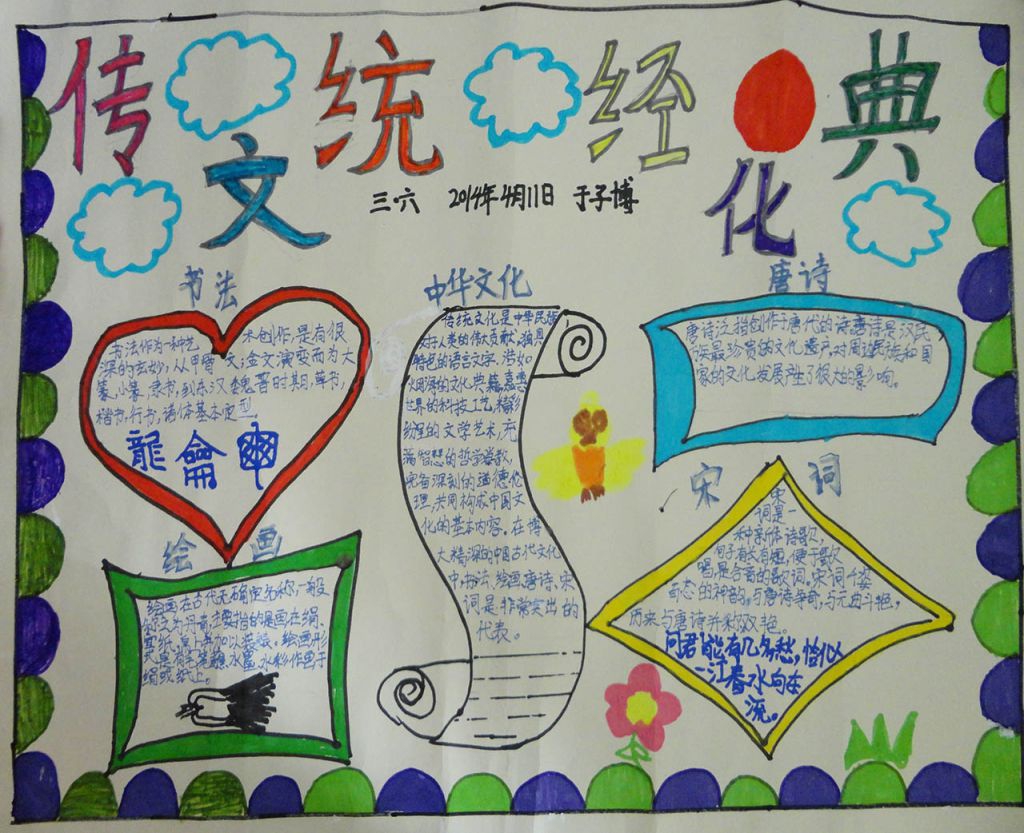 传统经典
文化
三·六 2014年4月11日 于子博
书法
书法作为一种艺术创作,是有很
深的玄妙,从甲骨文,金文演变而为大
篆,小篆,隶书,到东汉魏晋时期,草书,
楷书,行书,诸体基本定型
龍龠
中华文化
传统文化是中华民族
对人类的伟大贡献,独具
特色的语言文字,浩如
烟海的文化典籍,嘉惠
世界的科技工艺,精彩
纷呈的文学艺术,充
满智慧的哲学宗教,
完备深刻的道德伦
理,共同构成中国文
化的基本内容。在博
大精深的中国古代文化
中,书法、绘画,唐诗、宋
词是非常突出的
代表。
唐诗
唐诗泛指创作于唐代的诗,唐诗是汉民
族最珍贵的文化遗产,对周边民族和国
家的文化发展产生了很大的影响。
绘画
绘画在古代无确定名称,一般
称之为丹青,主要指的是画在绢、
宣纸、帛上并加以装裱。绘画形
式是有毛笔蘸水、墨、水彩作画于
绢或纸上。
宋词
宋
词是一
种新体诗歌,
句子有长有短,便于歌
唱,是合音的歌词。宋词千姿
百态的神韵,与唐诗争奇,与元曲斗艳,
历来与唐诗并称双艳。
问君能有几多愁,恰似
一江春水向东
流。